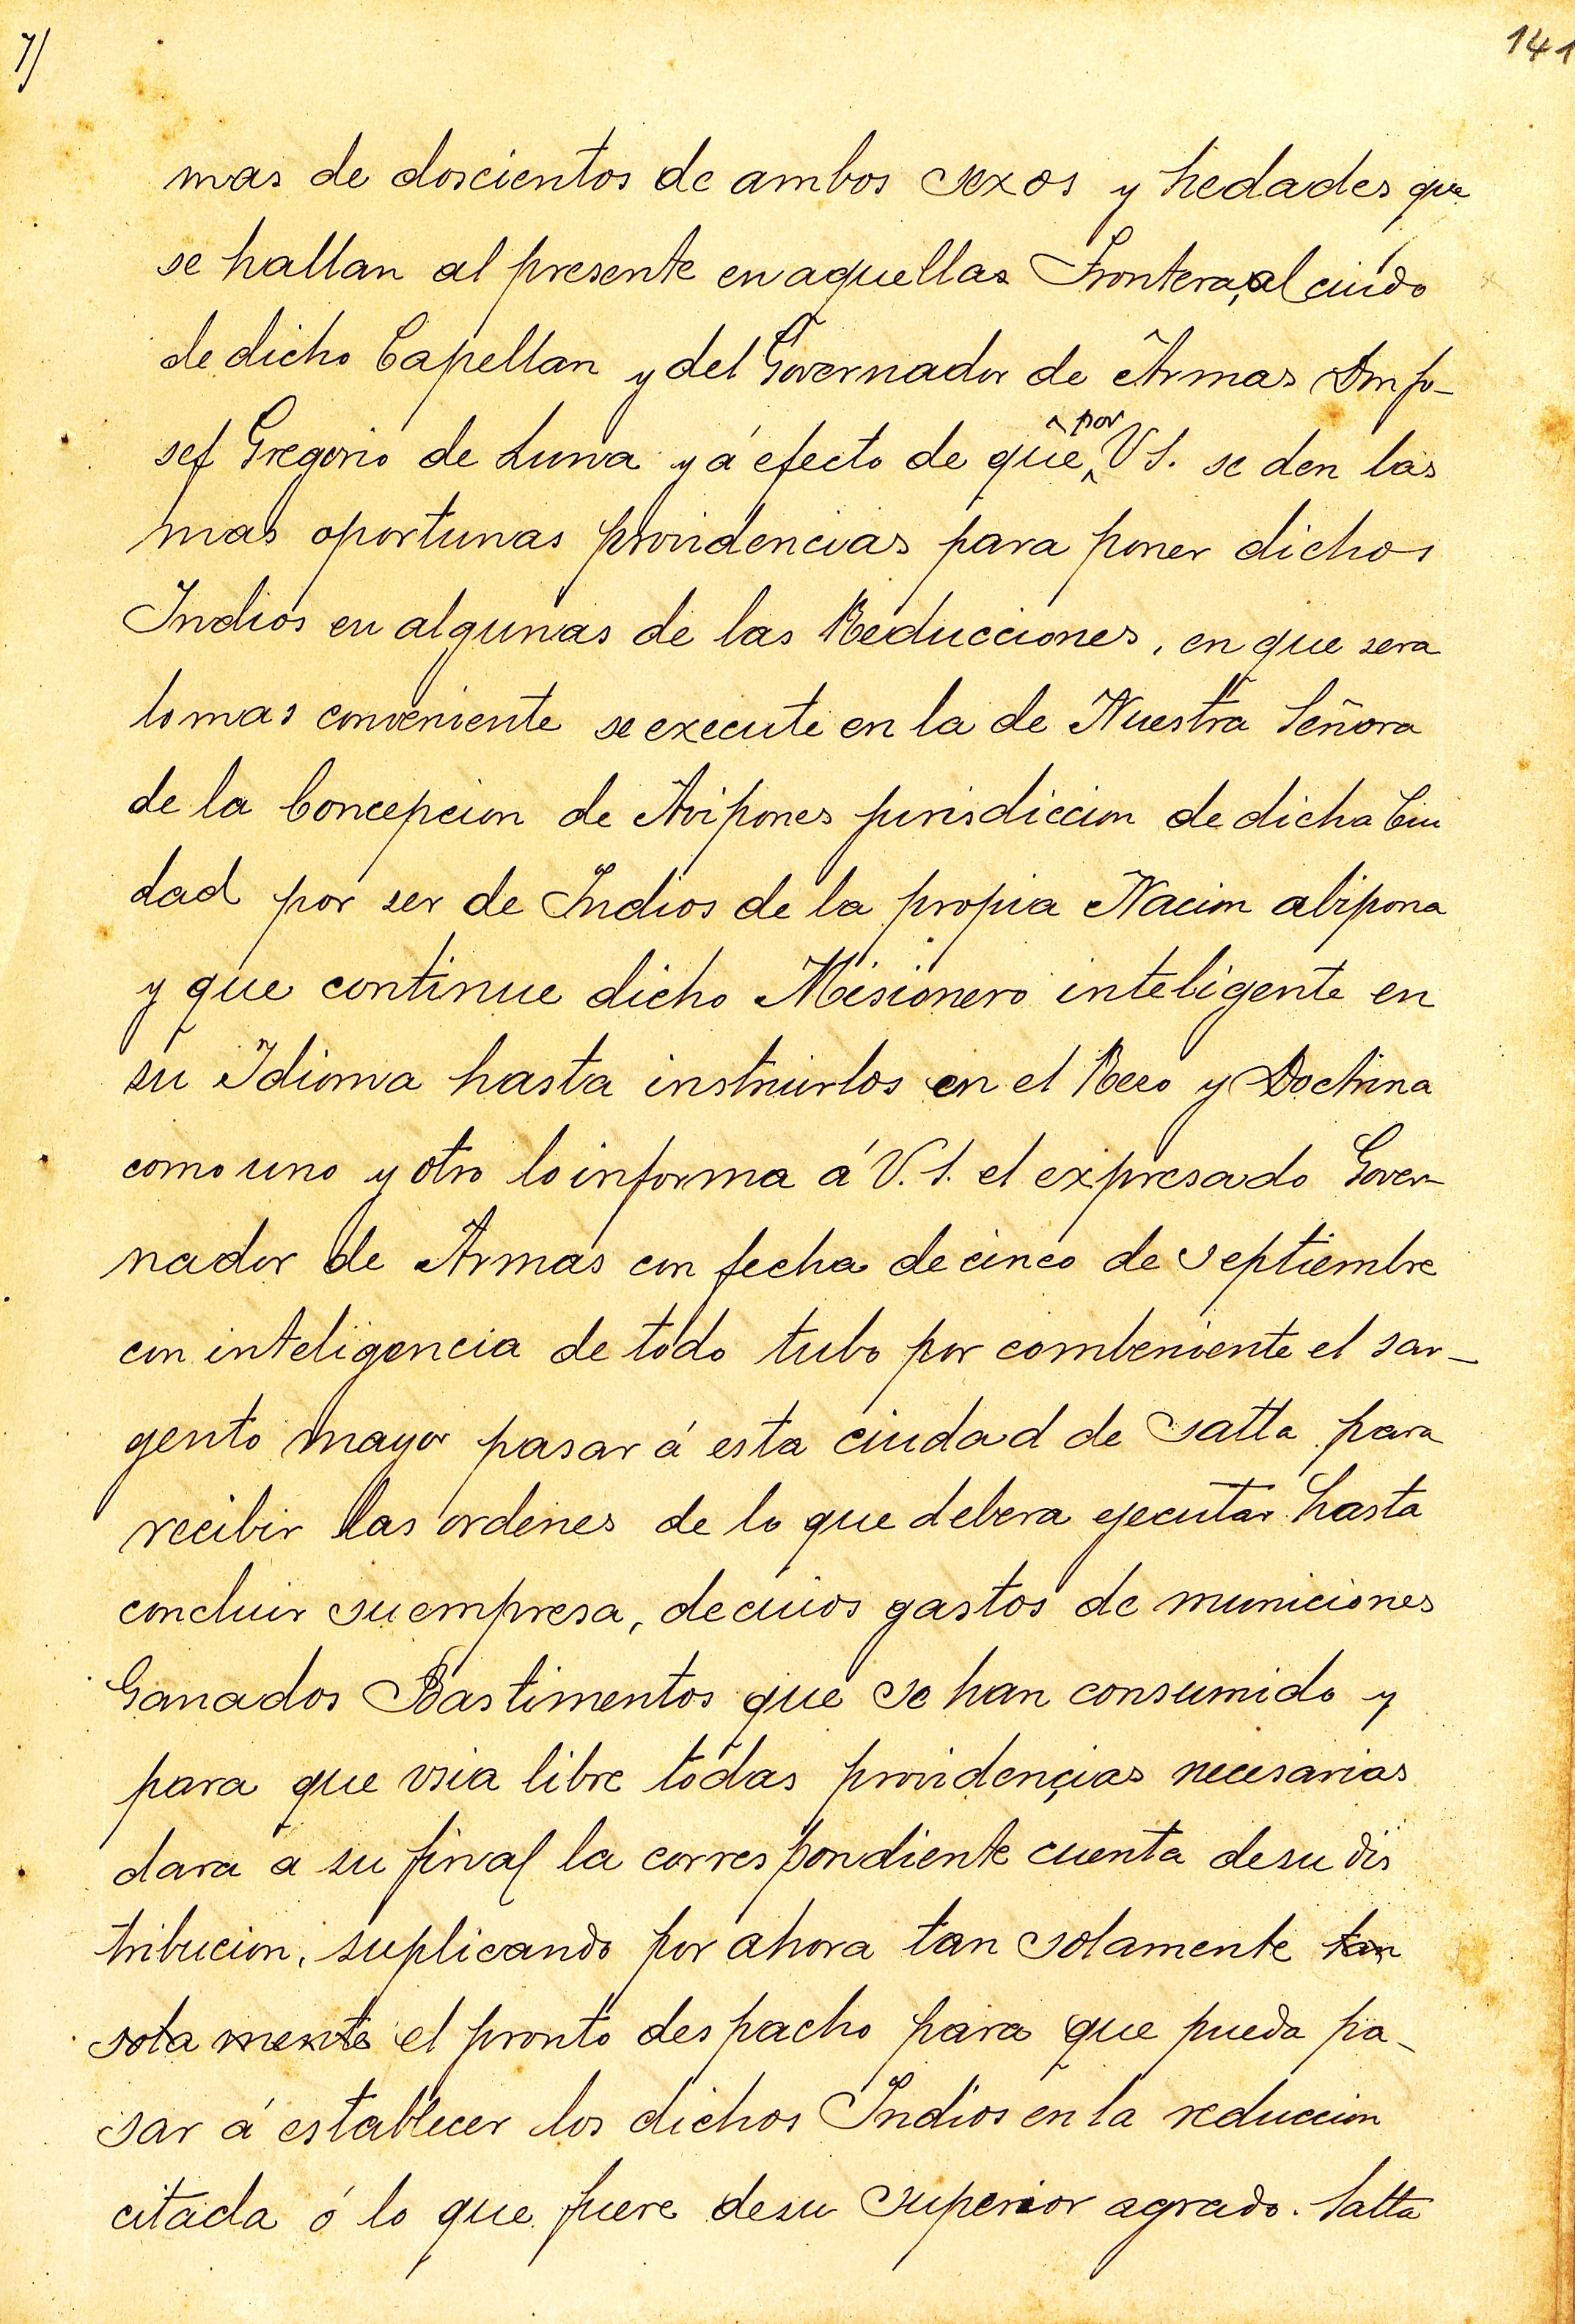 7)
141
mas de doscientos de ambos sexos y hedades que
se hallan al presente en aquellas Frontera, al cuido
de dicho Capellan y del Governador de Armas Dn Jo-
sef Gregorio de Luna y á efecto de que por V S. se den las
mas oportunas providencias para poner dichos
Indios en algunas de las Reducciones, en que sera
lo mas conveniente se execute en la de Nuestra Señora
de la Concepcion de Avipones jurisdiccion de dicha Ciu
dad por ser de Indios de la propia Nacion abipona
y que continue dicho Misionero inteligente en
su Idioma hasta instruirlos en el Rezo y Doctrina
como uno y otro lo informa á V. S. el expresado Gover-
nador de Armas con fecha de cinco de septiembre
con inteligencia de todo tubo por combeniente el sar-
gento mayor pasar á esta ciudad de Satta para
recibir las ordenes de lo que debera ejecutar hasta
concluir su empresa, de cuios gastos de municiones
Ganados Bastimentos que se han consumido y
para que vsia libre todas providençias necesarias
dara a su final la correspondiente cuenta de su dis
tribucion, suplicando por ahora tan solamente tan
sola mente el pronto despacho para que pueda pa-
sar á establecer los dichos Indios en la reduccion
citada ó lo que fuere de su superior agrado. Satta